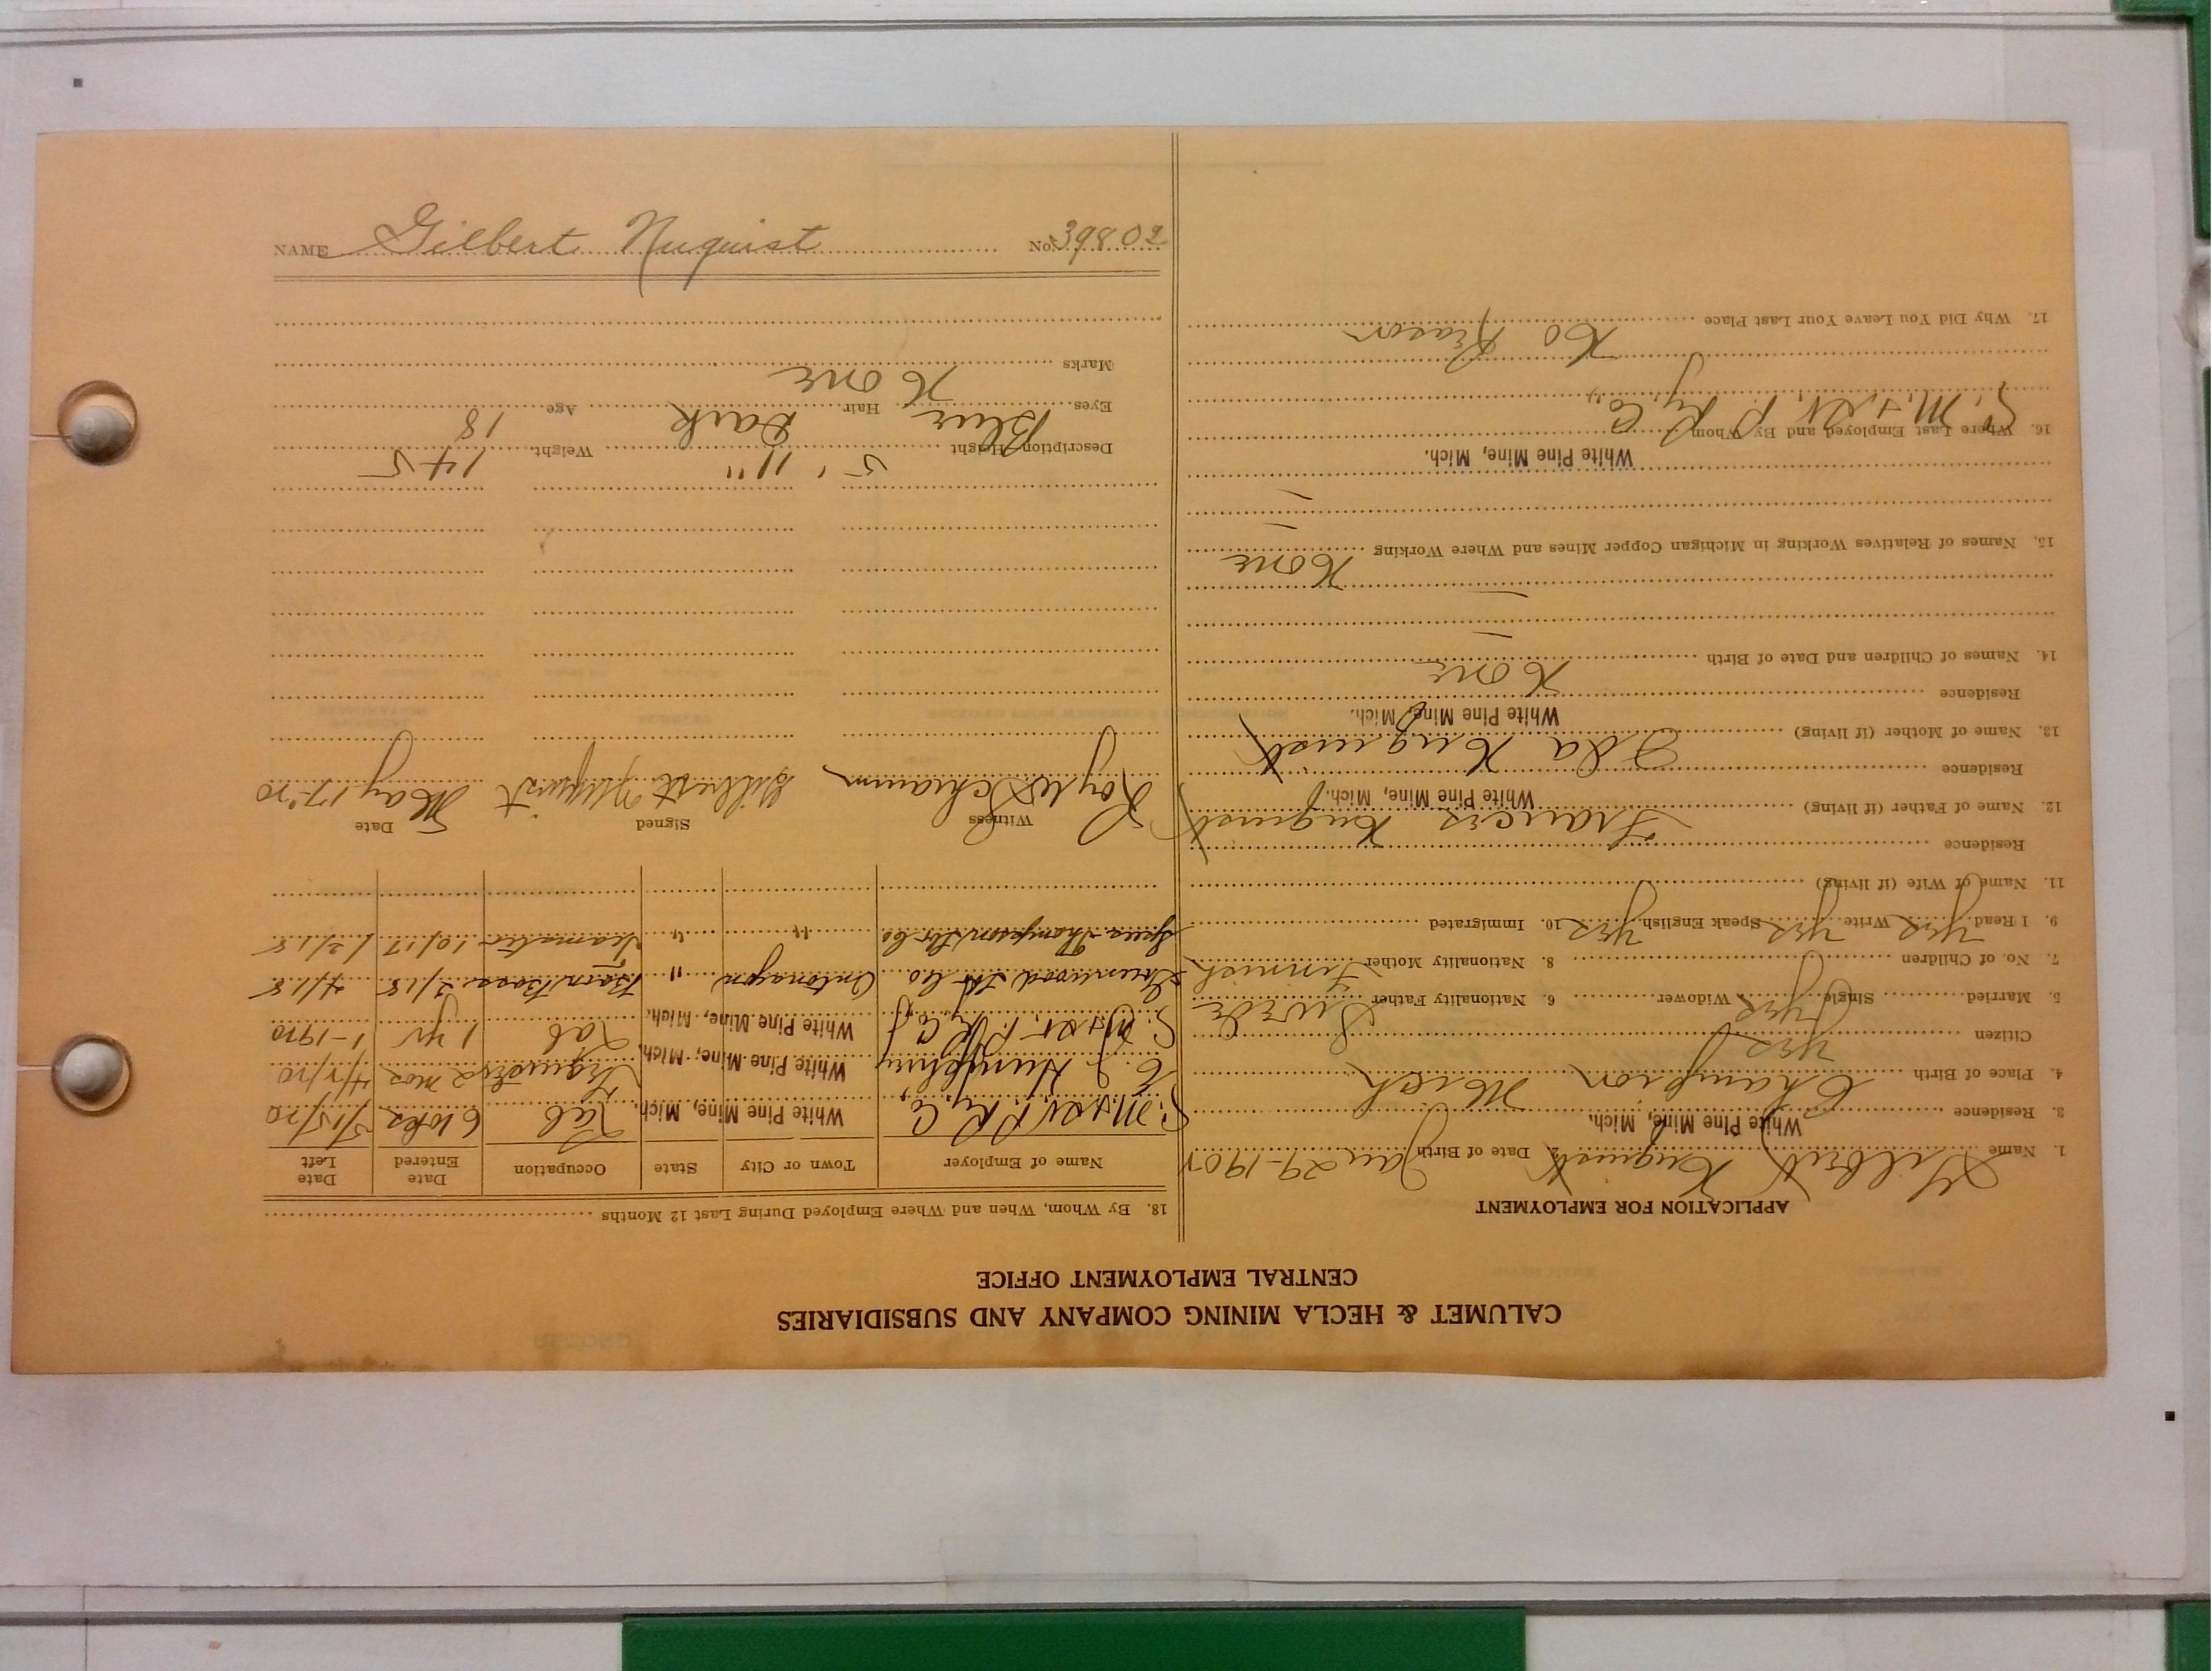 CALUMET & HECLA MINING COMPANY AND SUBSIDIARIES
CENTRAL EMPLOYMENT OFFICE
APPLICATION FOR EMPLOYMENT
1. Name Gilbert Nuquist 2. Date of Birth Jan 29-1902
3. Residence White Pine Mine, Mich.
4. Place of Birth Champion Mich
Citizen Yes
5. Married Single Yes Widower 6. Nationality Father Swede
7. No. of Children 8. Nationality Mother Finnish
9. I Read Yes Write Yes Speak English Yes 10. Immigrated
11. Name of Wife (if living)
Residence
12. Name of Father (if living) Francis Nuquist
Residence White Pine Mine, Mich.
13. Name of Mother (if living) Ida Nuquist
Residence White Pine Mine, Mich.
14. Names of Children and Date of Birth None
15. Names of Relatives Working in Michigan Copper Mines and Where Working None
White Pine Mine, Mich.
16. Where Last Employed and By Whom S. M. & W. P. Ry. Co.,
17. Why Did You Leave Your Last Place No Reason
18. By Whom, When and Where Employed During Last 12 Months
Name of Employer Town or City State Occupation Date Entered Date Left
S. M. & W. P. Ry. Co., White Pine Mine, Mich. Lab 6 wks 5/15/20
E. J. Humphrey White Pine Mine, Mich. 2 mos 4/1/20
S. M. & W. P. Ry. Co., White Pine Mine, Mich. Lab 1 yr 1-1920
Greenwood Lbr Co Ontonagon " Barn Boss 2/18 4/18
Thompson Lbr Co " " Teamster 10/17 12/18
Witness Signed Date
Schramm Gilbert Nuquist May 17-20
Description—Height 5' 11" Weight 145
Eyes Blue Hair Dark Age 18
Marks None
NAME Gilbert Nuquist No. 39802